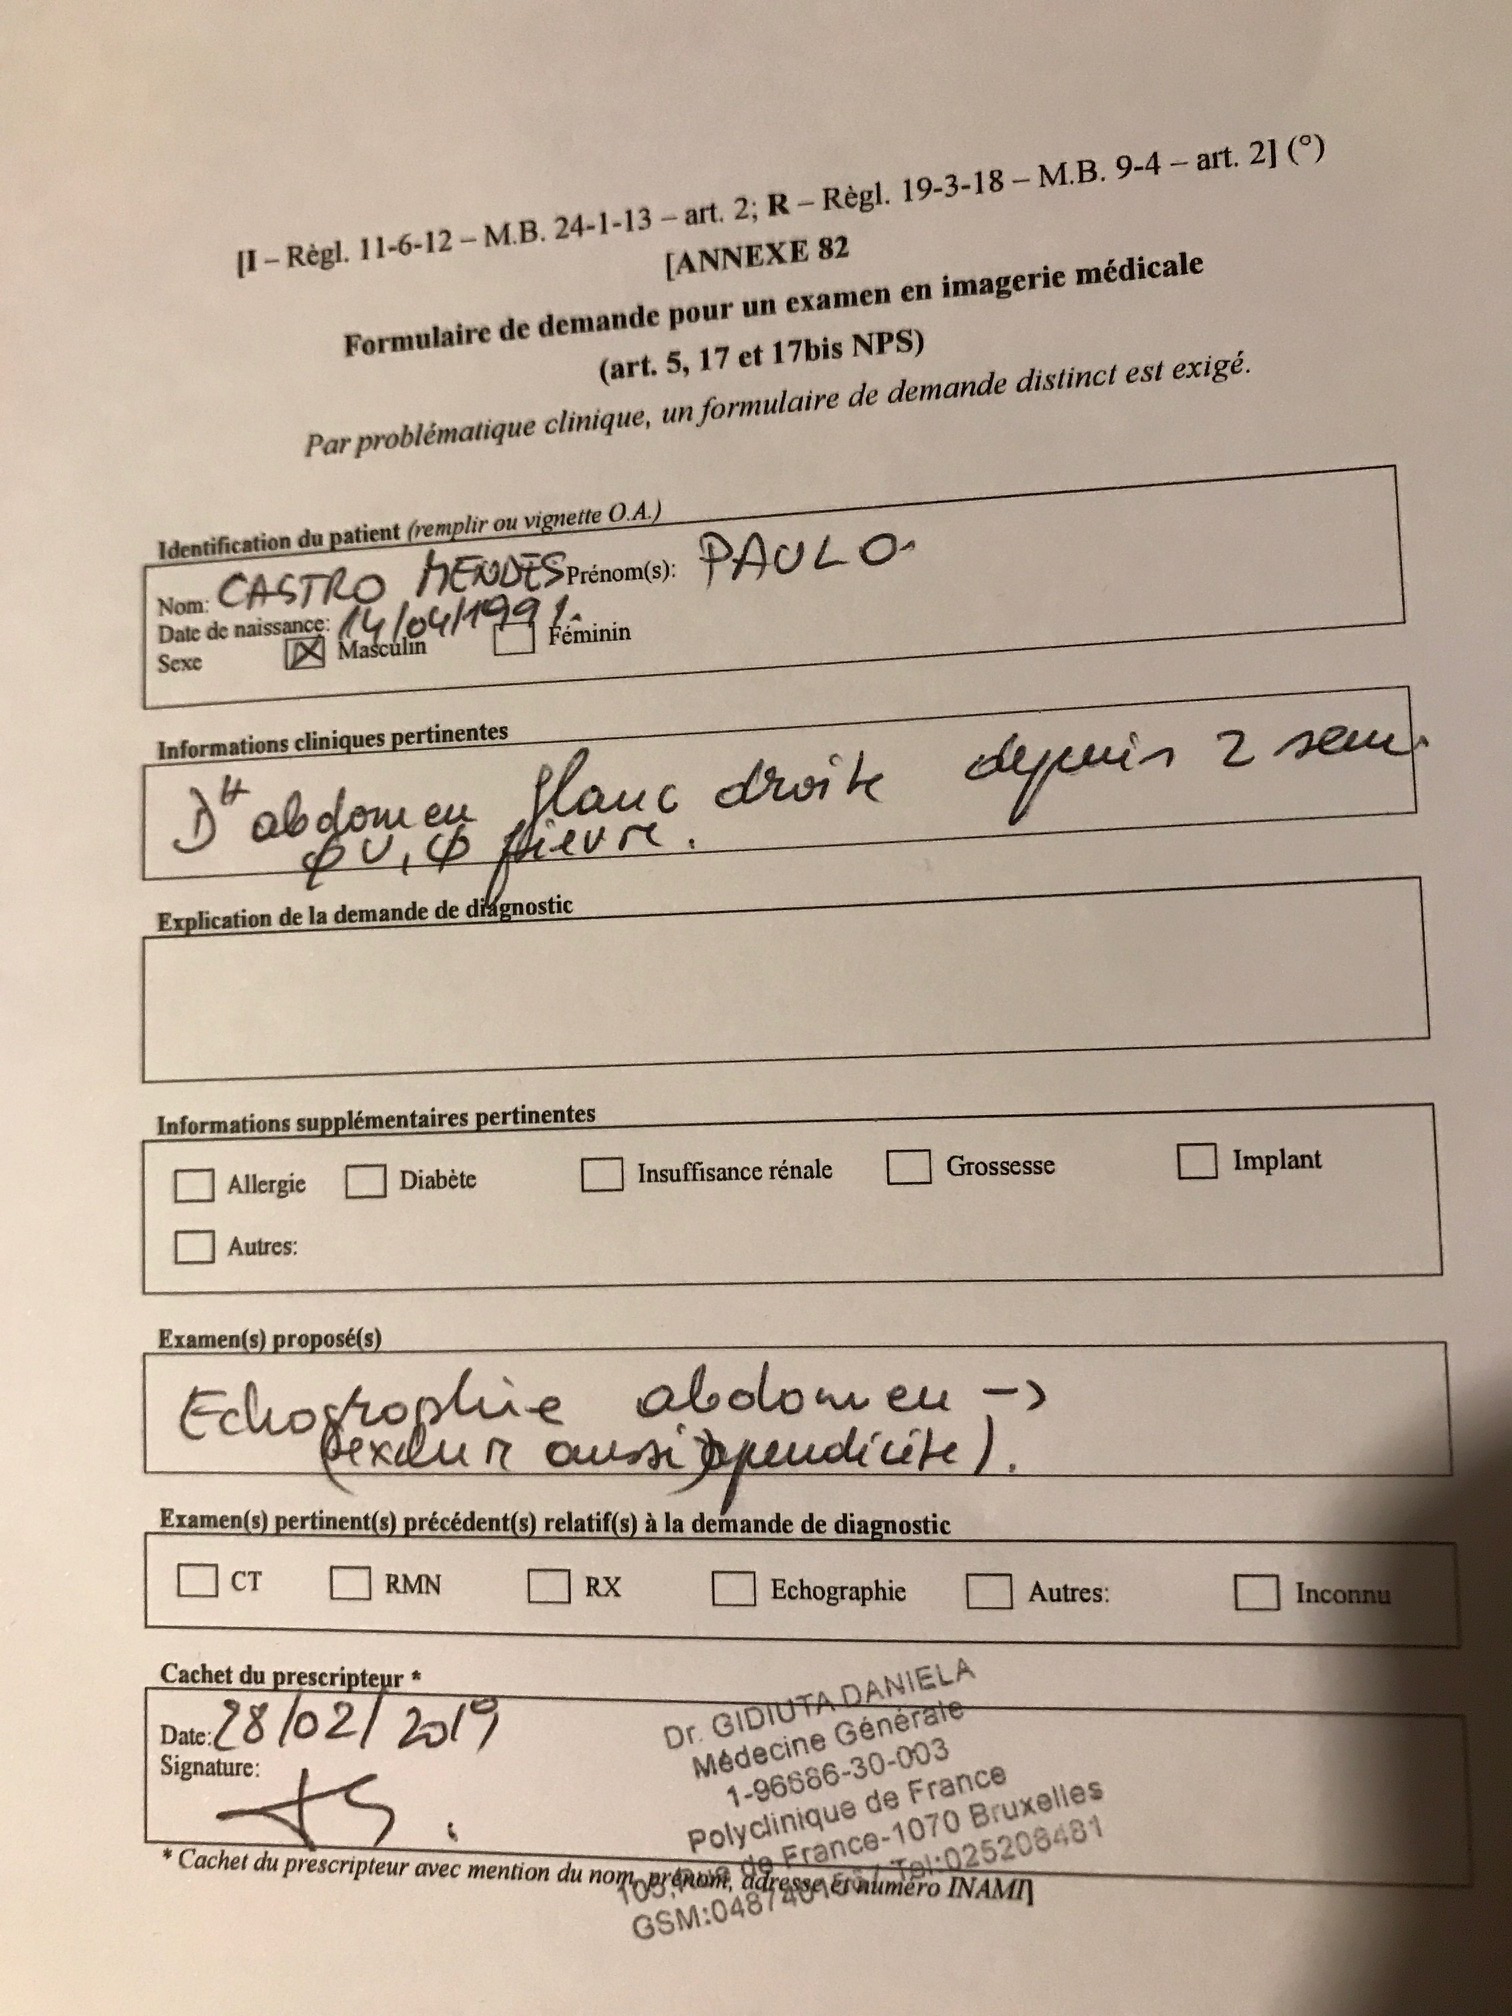 [I – Règl. 11-6-12 – M.B. 24-1-13 – art. 2; R – Règl. 19-3-18 – M.B. 9-4 – art. 2] (°)
[ANNEXE 82
Formulaire de demande pour un examen en imagerie médicale
(art. 5, 17 et 17bis NPS)
Par problématique clinique, un formulaire de demande distinct est exigé.
Identification du patient (remplir ou vignette O.A.)
Nom: CASTRO MENDES Prénom(s): PAULO
Date de naissance: 14/04/1991.
Sexe Masculin Féminin
Informations cliniques pertinentes
abdomen flanc droite depuis 2 sem.
φ V, φ fievre.
Explication de la demande de diagnostic
Informations supplémentaires pertinentes
Allergie Diabète Insuffisance rénale Grossesse Implant
Autres:
Examen(s) proposé(s)
Echographie abdomen ->
(exclur aussi apendicite).
Examen(s) pertinent(s) précédent(s) relatif(s) à la demande de diagnostic
CT RMN RX Echographie Autres: Inconnu
Cachet du prescripteur *
Date: 28/02/2019
Signature:
Dr. GIDIUTA DANIELA
Médecine Générale
1-96686-30-003
Polyclinique de France
de France-1070 Bruxelles
Tel:025208481
* Cachet du prescripteur avec mention du nom, prénom, adresse et numéro INAMI]